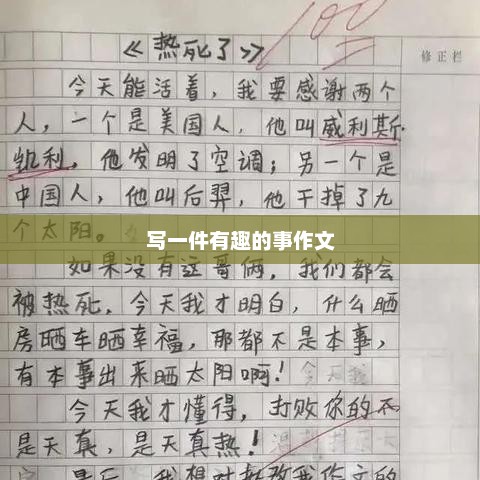 100
《热死了》
修正栏
今天能活着，我要感谢两个
人，一个是美国人，他叫威利斯·
凯利，他发明了空调；另一个是
中国人，他叫后羿，他干掉了九
个太阳。
写一件有趣的事作文
如果没有这哥俩，我们都会
被热死，今天我才明白，什么晒
房晒车晒幸福，那都不是本事，
有本事出来晒太阳啊！
今天我才懂得，打败你的不
是天真，是天真热！
最后，我想对批改我作文的